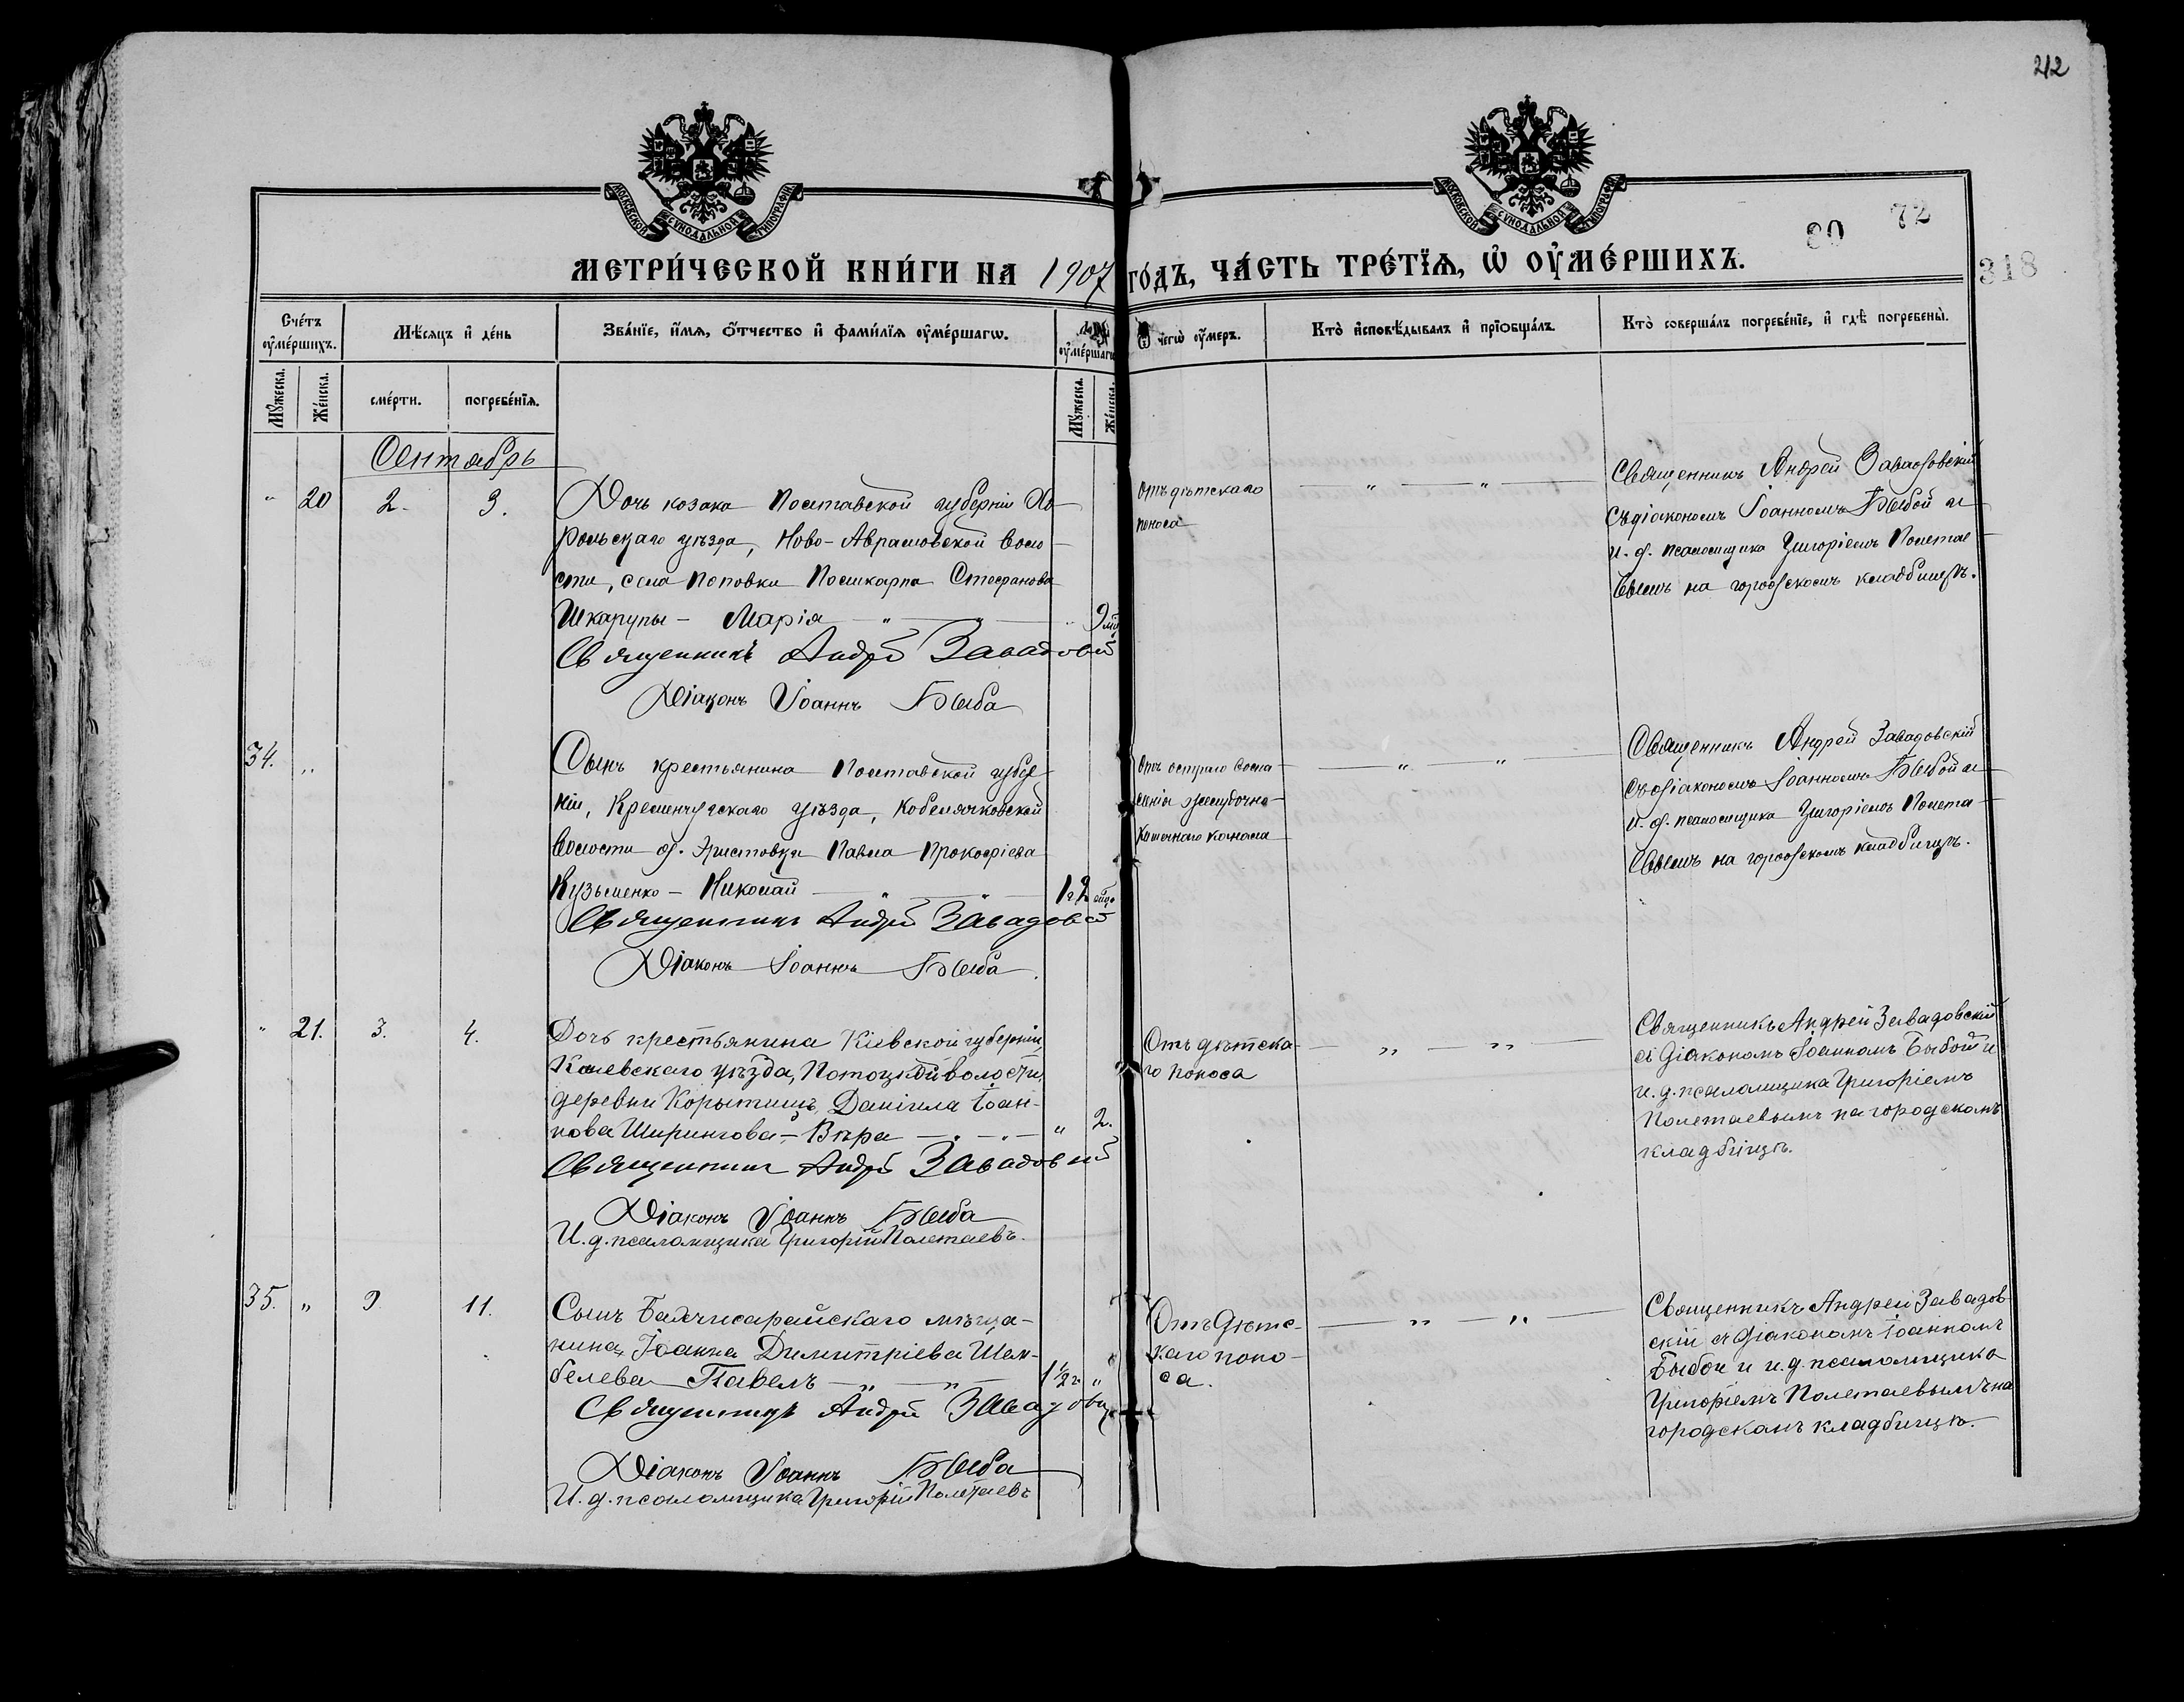 212
МОСКОВСКОЙ СѴНОДАЛЬНОЙ ТИПОГРАФІИ
МОСКОВСКОЙ СѴНОДАЛЬНОЙ ТИПОГРАФІИ
80 72
МЕТРИ́ЧЕСКОЙ КНИ́ГИ НА 1907 ГО́ДЪ, ЧА́СТЬ ТРЕ́ТЇѦ, Ѡ҆ ОУ҆МЕ́РШИХЪ.
318
Сче́тъ оу҆ме́ршихъ.
Мѣ́сяцъ и҆ де́нь
Зва́нїе, и҆́мѧ, ѻ҆́тчество и҆ фами́лїѧ оу҆ме́ршагѡ.
оу҆ме́ршагѡ
чегѡ̀ оу҆́меръ.
Кто̀ и҆сповѣ́дывалъ и҆ прїѻбща́лъ.
Кто̀ соверша́лъ погребе́нїе, и҆ гдѣ̀ погребены̀.
Мꙋ́жеска.
Же́нска.
сме́рти.
погребе́нїѧ.
Мꙋ́жеска.
Же́нска.
Сентябрь
" 20 2. 3.
Дочь козака Полтавской губерніи Хо-
рольскаго уѣзда, Ново-Аврамовской воло-
сти, села Поповки Поликарпа Стефанова
Шкарупы - Марія — " — " 9 мѣс
Священникъ Андрей Завадовскій
Діаконъ Іоаннъ Быба
отъ дѣтскаго
поноса
— " — " —
Священникъ Андрей Завадовскій
съ діакономъ Іоанномъ Быбой и
и. д. псаломщика Григоріемъ Полетае-
вымъ на городскомъ кладбищѣ.
34. "
Сынъ крестьянина Полтавской губер-
ніи, Кременчугскаго уѣзда, Кобелячковской
волости д. Эристовки Павла Прокофіева
Кузьменко - Николай — " — "
Священникъ Андрей Завадовскій
Діаконъ Іоаннъ Быба.
отъ остраго воспа-
ленія желудочно-
кишечнаго канала
— " — " —
Священникъ Андрей Завадовскій
съ діакономъ Іоанномъ Быбой и
и. д. псаломщика Григоріемъ Полета-
евымъ на городскомъ кладбищѣ.
" 21. 3. 4.
Дочь крестьянина Кіевской губерніи,
Каневскаго уѣзда, Потоцкой волости,
деревни Корытищъ, Даніила Іоан-
нова Ширингова - Вѣра — " — " 2.
Священникъ Андрей Завадовскій
Діаконъ Іоаннъ Быба
И. д. псаломщика Григорій Полетаевъ.
Отъ дѣтска-
го поноса
— " — " —
Священникъ Андрей Завадовскій
съ діакономъ Іоанномъ Быбой и
и. д. псаломщика Григоріемъ
Полетаевымъ на городскомъ
кладбищѣ.
35. " 9. 11.
Сынъ Бахчисарайскаго мѣща-
нина, Іоанна Димитріева Шам-
белева Павелъ — " — " — 1½ г. "
Священникъ Андрей Завадовскій
Діаконъ Іоаннъ Быба
И. д. псаломщика Григорій Полетаевъ
Отъ дѣтс-
каго поно-
са.
— " — " —
Священникъ Андрей Завадов-
скій съ діакономъ Іоанномъ
Быбой и и. д. псаломщика
Григоріемъ Полетаевымъ на
городскомъ кладбищѣ.